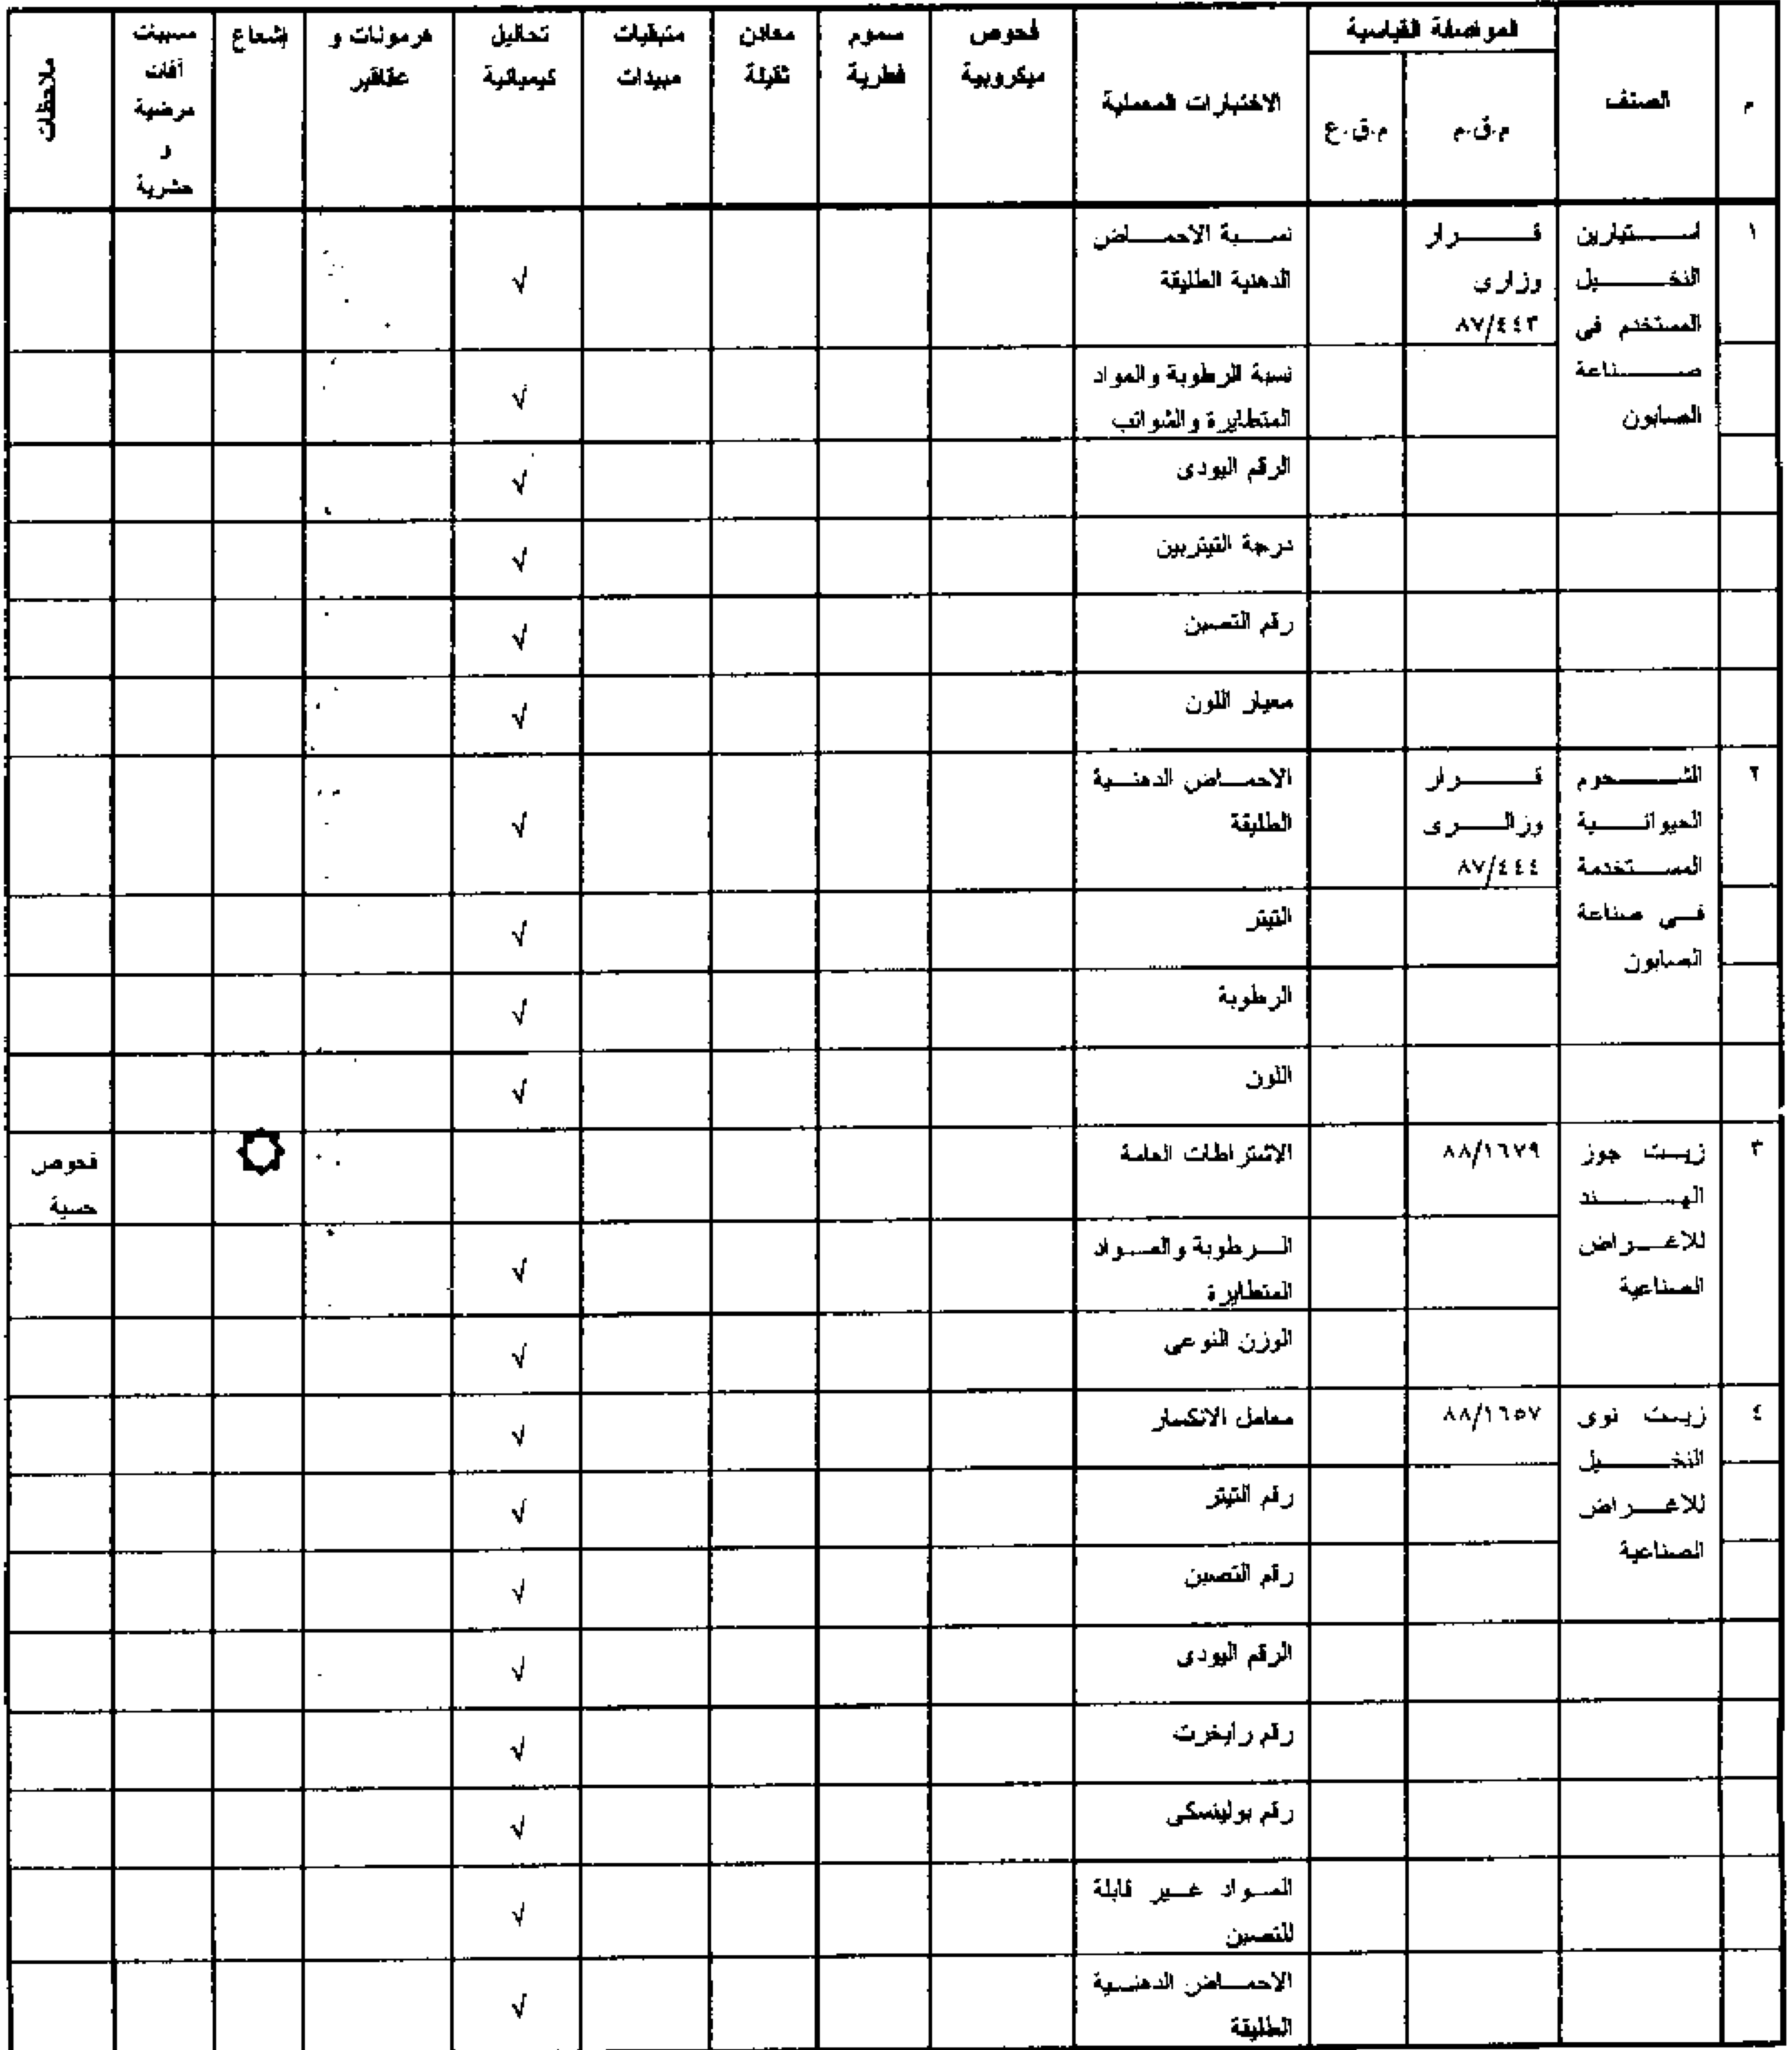 م
الصنف
المواصفة القياسية
م.ق.م
م.ق.ع
الاختبارات المعملية
فحوص ميكروبية
سموم فطرية
معادن ثقيلة
متبقيات مبيدات
تحاليل كيميائية
هرمونات و عقاقير
إشعاع
مسببات آفات مرضية و حشرية
ملاحظات
١
استيارين النخيل المستخدم فى صناعة الصابون
قرار وزارى ٨٧/٤٤٣
نسبة الاحماض الدهنية الطليقة
√
نسبة الرطوبة والمواد المتطايرة والشوائب
√
الرقم اليودى
√
درجة التيتربين
√
رقم التصبن
√
معيار اللون
√
٢
الشحوم الحيوانية المستخدمة فى صناعة الصابون
قرار وزالرى ٨٧/٤٤٤
الاحماض الدهنية الطليقة
√
التيتر
√
الرطوبة
√
اللون
√
٣
زيت جوز الهند للاغراض الصناعية
٨٨/١٦٧٩
الاشتراطات العامة
فحوص حسية
الرطوبة والمواد المتطايرة
√
الوزن النوعى
√
٤
زيت نوى النخيل للاغراض الصناعية
٨٨/١٦٥٧
معامل الانكسار
√
رقم التيتر
√
رقم التصبن
√
الرقم اليودى
√
رقم رايخرت
√
رقم بولينسكى
√
المواد غير قابلة للتصبن
√
الاحماض الدهنية الطليقة
√